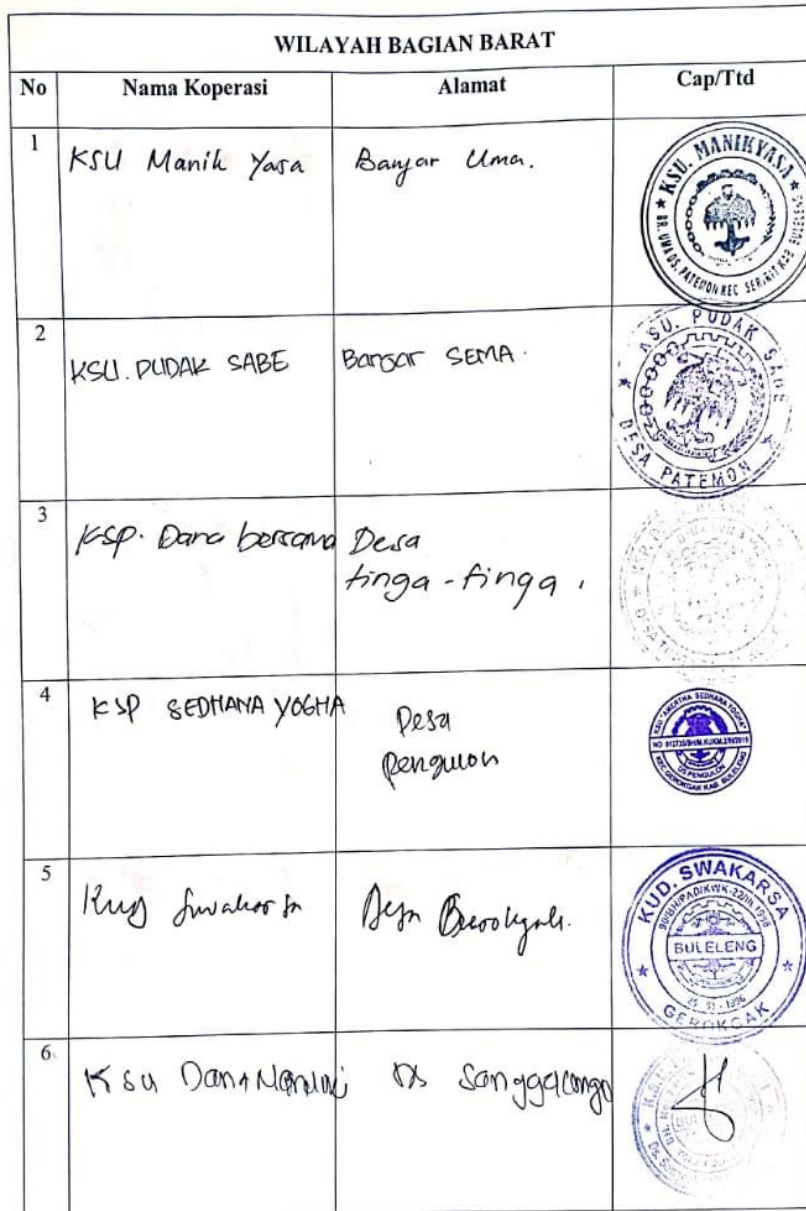 WILAYAH BAGIAN BARAT
No Nama Koperasi Alamat Cap/Ttd
1 KSU Manik Yasa Banjar Uma.
KSU. MANIKYASA
BR. UMA DS. PATEMON KEC SERIRIT KAB BULELENG
2 KSU. PUDAK SABE Banjar SEMA.
KSU. PUDAK SABE
DESA PATEMON
3 KSP. Dana bersama Desa
tinga-tinga.
4 KSP SEDHANA YOGHA Desa
Pengulon
KSU "AMERTHA SEDHANA YOGHA"
DS PENGULON
KEC GEROKGAK KAB BULELENG
5 KUD Swakarsa Desa Gerokgak.
KUD. SWAKARSA
BULELENG
GEROKGAK
6 KSU Dana Mandiri Ds Sanggalangit